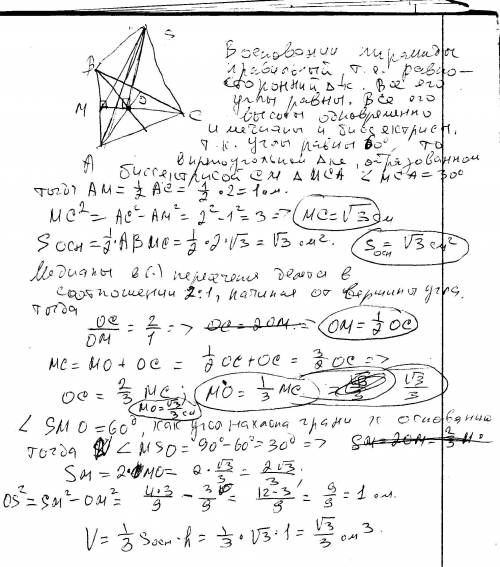 S
B
M
O
C
A
В основании пирамиды
правильный т.е. равно-
сторонний Δк. Все его
углы равны. Все его
высоты одновременно
и медианы и биссектрисы.
т.к. углы равны 60°, то
в прямоугольном Δке, образованном
биссектрисой CM Δ MCA ∠ MCA = 30°
тогда AM = 1/2 AC = 1/2 · 2 = 1 см.
MC² = AC² - AM² = 2² - 1² = 3 => MC = √3 см
S осн = 1/2 · AB MC = 1/2 · 2 · √3 = √3 см². S осн = √3 см²
Медианы в (·) пересечения делятся в
соотношении 2:1, начиная от вершины угла.
тогда
OC/OM = 2/1 => OC = 2OM => OM = 1/2 OC
MC = MO + OC = 1/2 OC + OC = 3/2 OC =>
OC = 2/3 MC; MO = 1/3 MC = √3/3
MO = √3/3 см
∠ SMO = 60° как угол наклона грани к основанию
Тогда ∠ MSO = 90° - 60° = 30° => SM = 2OM =
SM = 2 · MO = 2 · √3/3 = 2√3/3.
OS² = SM² - OM² = 4·3/9 - 3/9 = 12-3/9 = 9/9 = 1 см.
V = 1/3 Sосн · h = 1/3 · √3 · 1 = √3/3 см³.